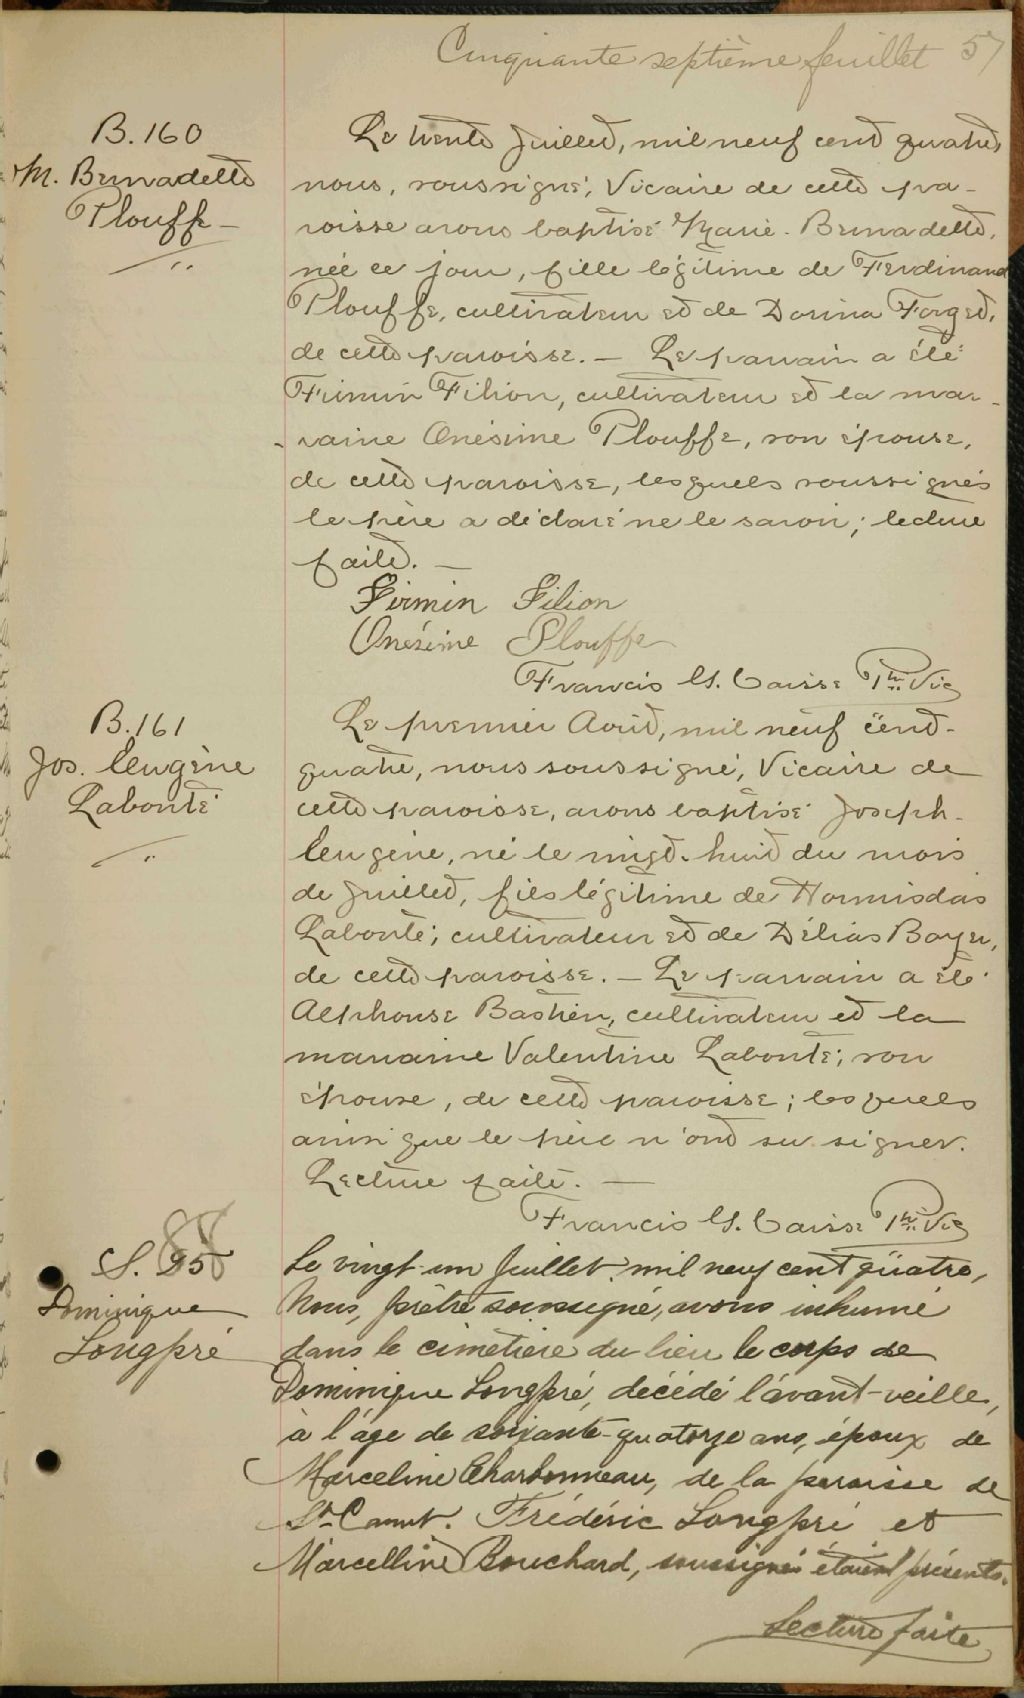 Cinquante septième feuillet 57
B. 160
M. Bernadette
Plouffe
Le trente Juillet, mil neuf cent quatre,
nous, soussigné, Vicaire de cette pa-
roisse avons baptisé Marie-Bernadette,
née ce jour, fille légitime de Ferdinand
Plouffe, cultivateur et de Dorina Forget,
de cette paroisse. — Le parrain a été
Firmin Filion, cultivateur et la mar-
raine Onésime Plouffe, son épouse,
de cette paroisse, lesquels soussignés
le père a déclaré ne le savoir; lecture
faite. —
Firmin Filion
Onésime Plouffe
Francis G. Caisse Ptre Vic
B. 161
Jos. Eugène
Labonté
Le premier Août, mil neuf cent-
quatre, nous soussigné, Vicaire de
cette paroisse, avons baptisé Joseph-
Eugène, né le vingt-huit du mois
de Juillet, fils légitime de Hormisdas
Labonté, cultivateur et de Délias Boyer,
de cette paroisse. — Le parrain a été
Alphonse Bastien, cultivateur et la
marraine Valentine Labonté, son
épouse, de cette paroisse; lesquels
ainsi que le père n'ont su signer.
Lecture faite. —
Francis G. Caisse Ptre Vic
S.
Dominique
Longpré
Le vingt-un Juillet mil neuf cent quatre,
Nous, prêtre soussigné, avons inhumé
dans le cimetière du lieu le corps de
Dominique Longpré, décédé l'avant-veille,
à l'âge de soixante-quatorze ans, époux de
Marceline Charbonneau, de la paroisse de
St-Canut. Frédéric Longpré et
Marcelline Bouchard, soussignés étaient présents.
Lecture faite